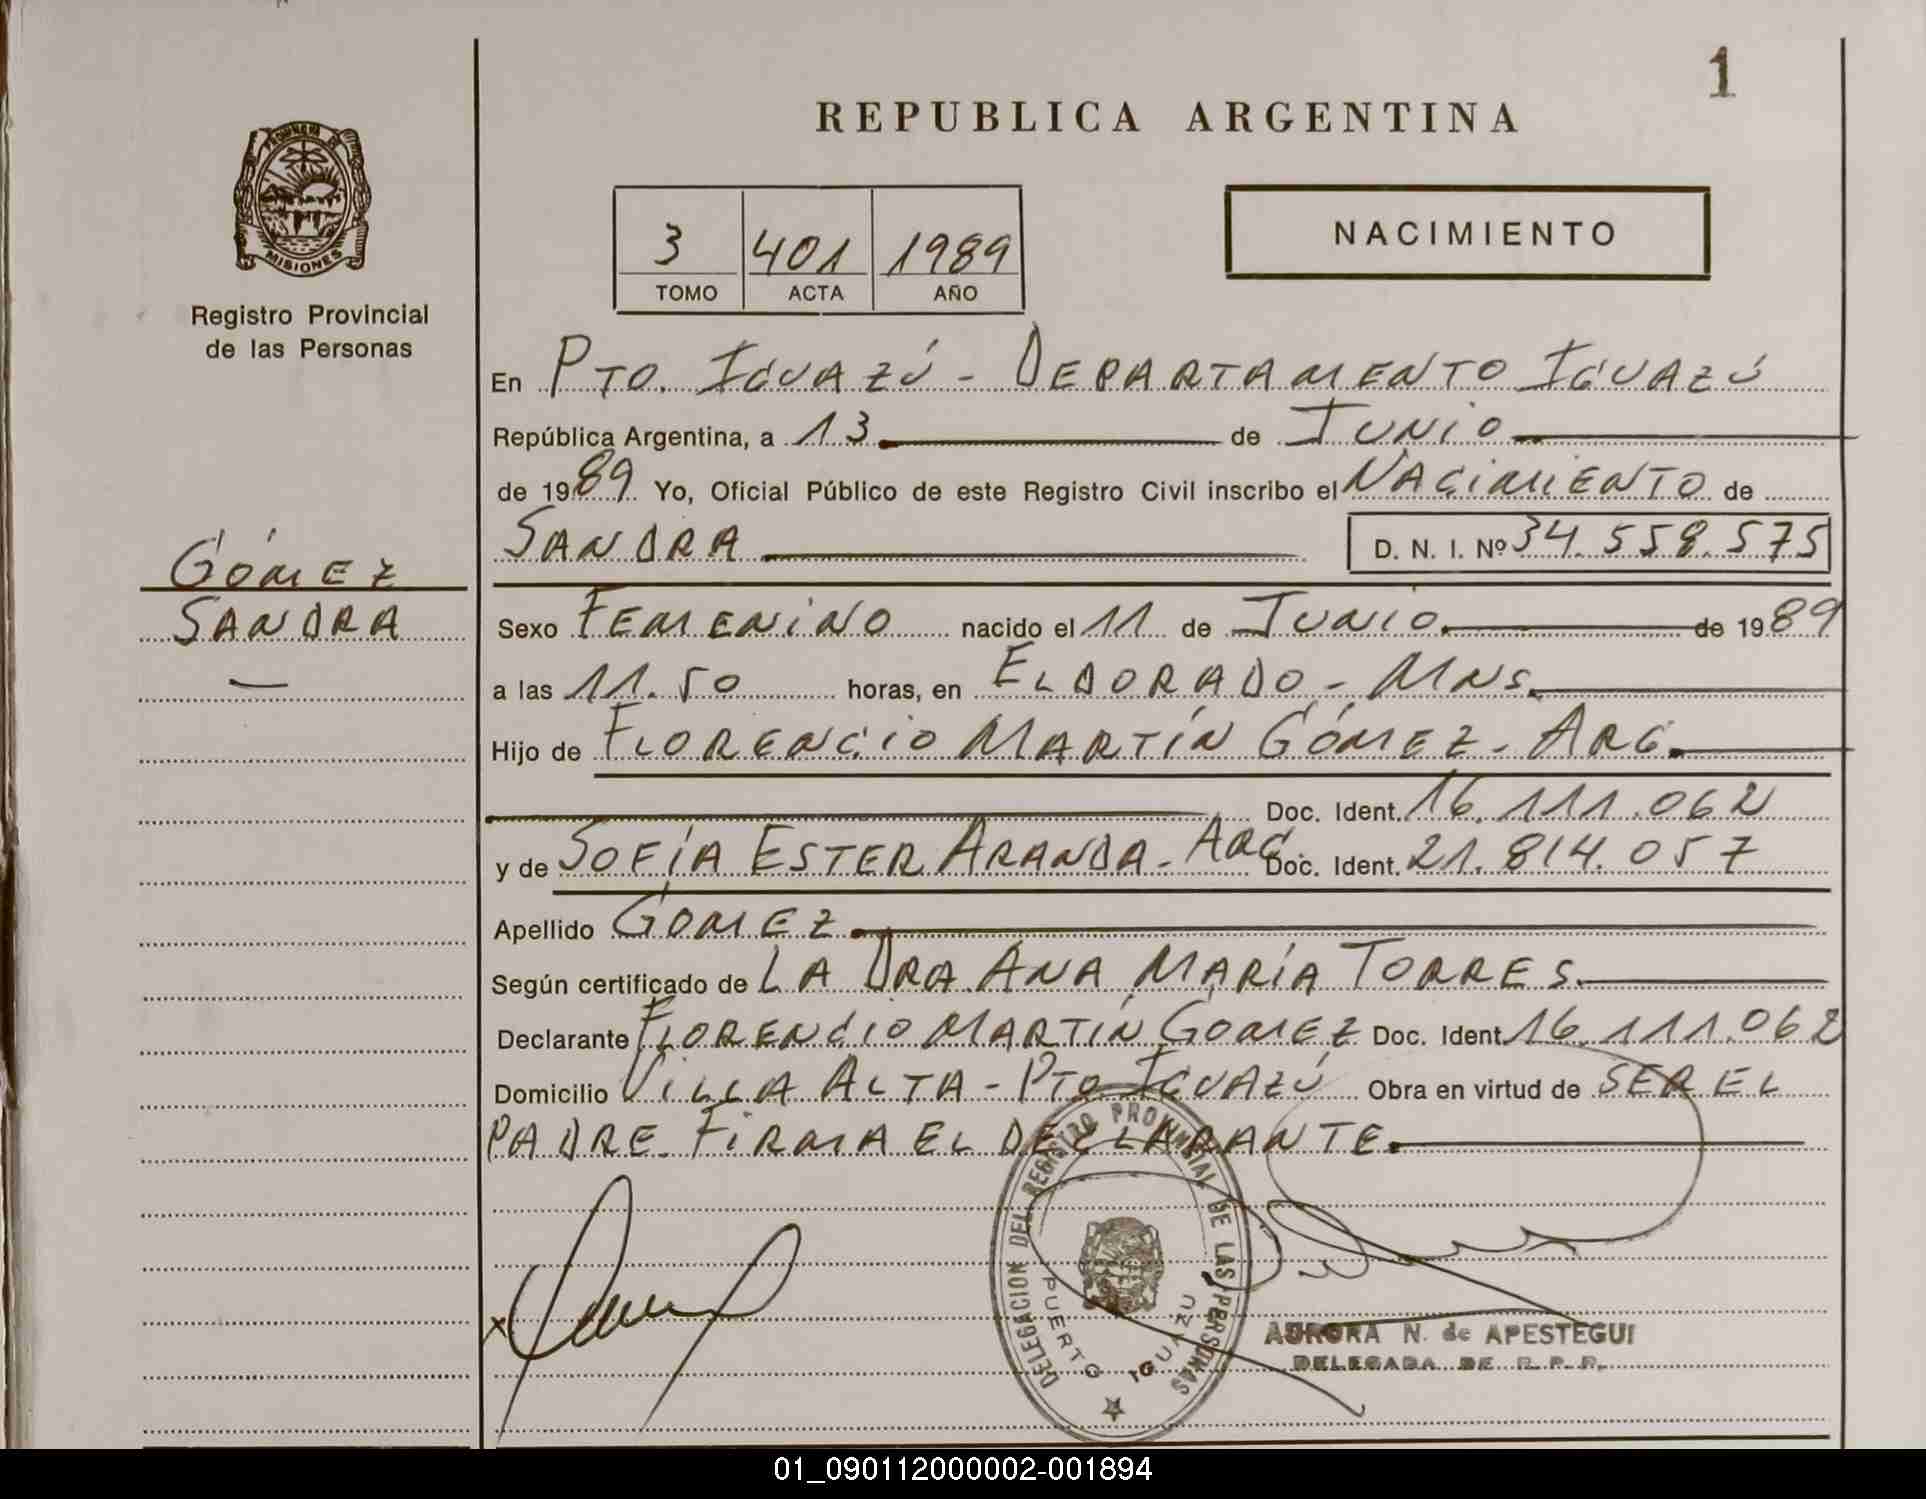 1
REPUBLICA ARGENTINA
PROVINCIA DE
MISIONES
Registro Provincial
de las Personas
3 401 1989
TOMO ACTA AÑO
NACIMIENTO
En PTO. IGUAZÚ - DEPARTAMENTO IGUAZÚ
República Argentina, a 13 de JUNIO
de 1989 Yo, Oficial Público de este Registro Civil inscribo el NACIMIENTO de
SANDRA D. N. I. Nº 34.558.575
GÓMEZ
SANDRA
Sexo FEMENINO nacido el 11 de JUNIO de 1989
a las 11.50 horas, en ELDORADO - MNS.
Hijo de FLORENCIO MARTÍN GÓMEZ - ARG.
Doc. Ident. 16.111.062
y de SOFÍA ESTER ARANDA - ARG. Doc. Ident. 21.814.057
Apellido GÓMEZ
Según certificado de LA DRA ANA MARÍA TORRES.
Declarante FLORENCIO MARTÍN GÓMEZ Doc. Ident. 16.111.062
Domicilio VILLA ALTA - PTO IGUAZÚ Obra en virtud de SER EL
PADRE. FIRMA EL DECLARANTE.
DELEGACION DEL REGISTRO PROVINCIAL DE LAS PERSONAS
PUERTO IGUAZU
AURORA N. de APESTEGUI
DELEGADA DE R. P. P.
01_090112000002-001894